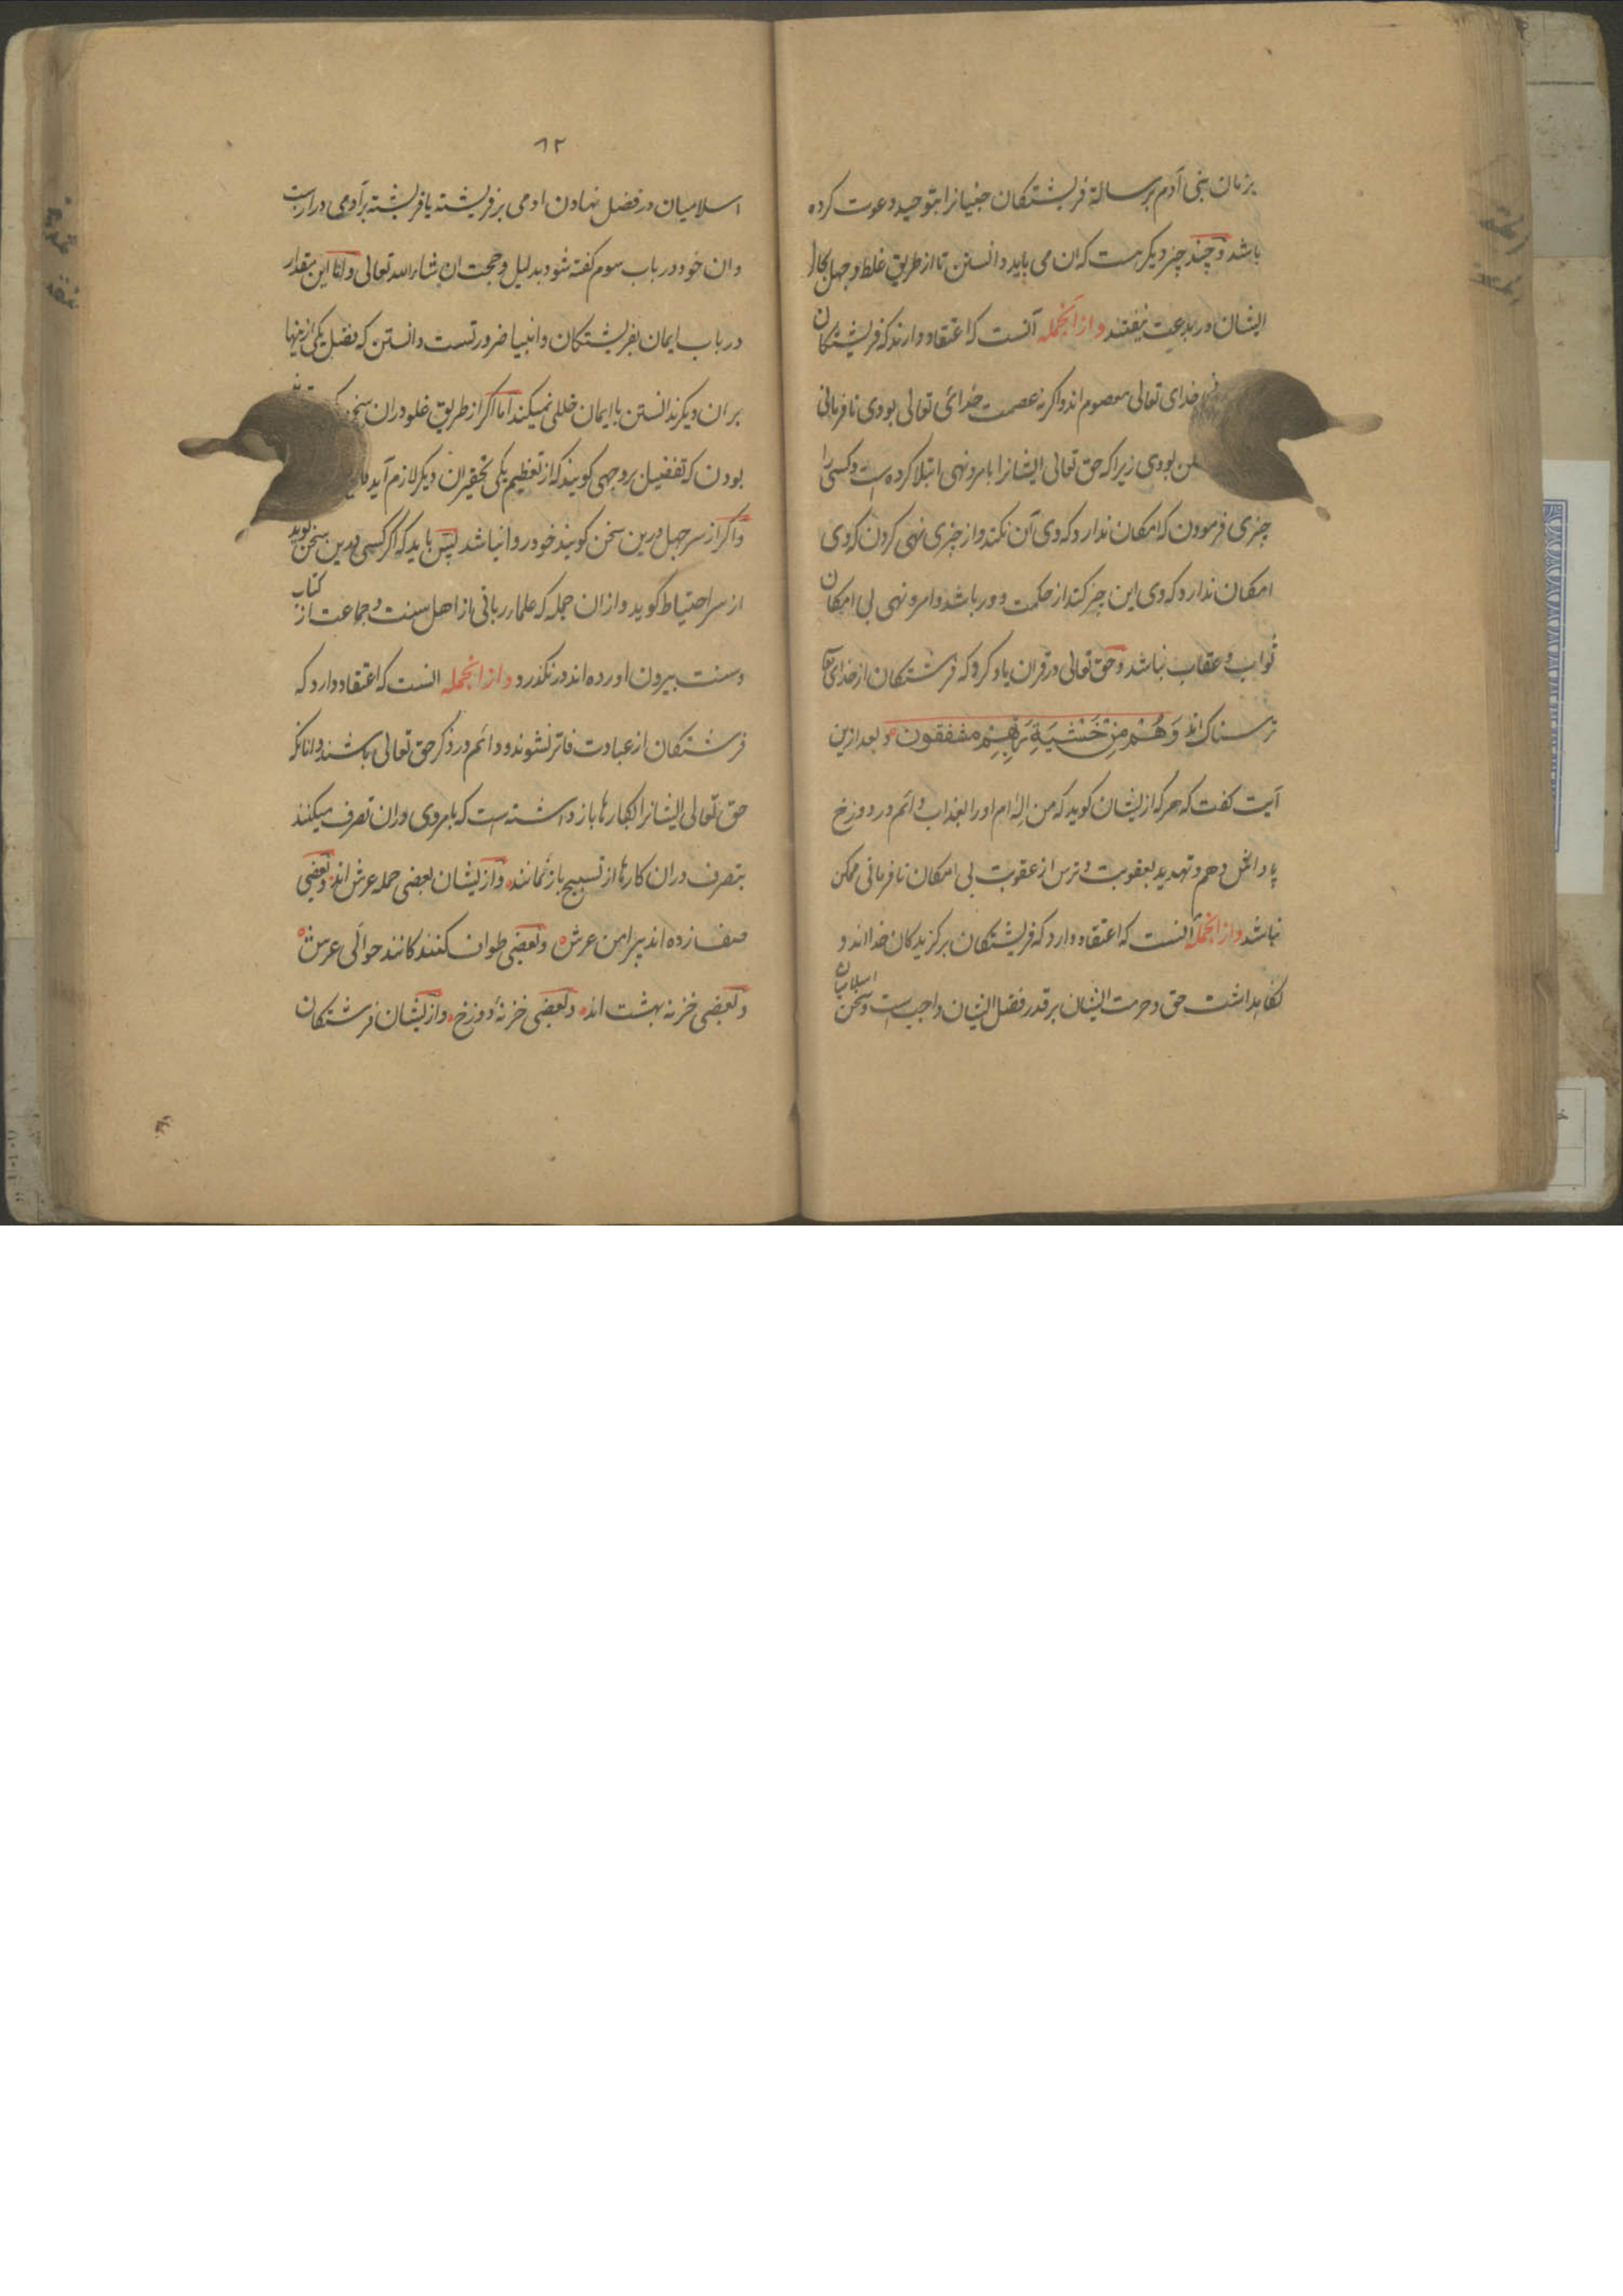 بزبان بنی آدم برسالة فریشتکان جنیانرا بتوحید دعوت کرده
باشد و چند چیز دیکر هست که ان می باید دانستن تا از طریق غلط و جهل بکار
ایشان در بدعت نیفتند و ازانجمله آنست که اعتقاد دارند که فریشتکان
خدای تعالی معصوم اند و اکر نه عصمت خدائی تعالی بودی نافرمانی
بودی زیرا که حق تعالی ایشانرا بامر و نهی ابتلا کرده است و کسی را
چیزی فرمودن که امکان ندارد که وی آن نکند و از چیزی نهی کردن که وی
امکان ندارد که وی این چیز کند از حکمت دور باشد و امر و نهی بی امکان
ثواب و عقاب نباشد و حق تعالی در قران یاد کرد که فرشتکان از خدای تعا
ترسناک اند وَهُمْ مِنْ خَشْیَةِ رَبِّهِمْ مشفقون و بعد ازین
آیت کفت که هر که از ایشان کوید که من اِله ام او را بعذاب دائم در دوزخ
پاداش دهم و تهدید بعقوبت و ترس از عقوبت بی امکان نافرمانی ممکن
نباشد و ازانجمله آنست که اعتقاد دارد که فریشتکان برکزیدکان خدااند و
نکاهداشت حق و حرمت ایشان بر قدر فضل ایشان واجبست و سخن اسلامیان
۶۲
اسلامیان در فضل نهادن ادمی بر فریشته یا فریشته بر آدمی درازست
و ان خود در باب سوم کفته شود بدلیل و حجت ان شاء الله تعالی و اما این مقدار
در باب ایمان بفریشتکان و انبیا ضرورتست دانستن که فضل یکی ازینها
بر ان دیکر ندانستن با ایمان خللی نمیکند اما اکر از طریق غلو دران سخن
بودن که تفضیل بر وجهی کویند که از تعظیم یکی تحقیر ان دیکر لازم آید
و اکر از سر جهل درین سخن کویند خود روا نباشد پس باید که اکر کسی درین سخن کوید
از سر احتیاط کوید و ازان جمله که علماء ربانی از اهل سنت و جماعت از کتاب
و سنت بیرون اورده اند در نکذرد و ازانجمله انست که اعتقاد دارد که
فرشتکان از عبادت فاتر نشوند و دائم در ذکر حق تعالی باشند و انانکه
حق تعالی ایشانرا بکارها باز داشته است که بامر وی دران تصرف میکنند
بتصرف دران کارها از تسبیح باز نمانند و از یشان بعضی حمله عرش اند و بعضی
صف زده اند پیرامن عرش و بعضی طواف کنندکانند حوالی عرش
و بعضی خزنه بهشت اند و بعضی خزنهٔ دوزخ و از یشان فرشتکان